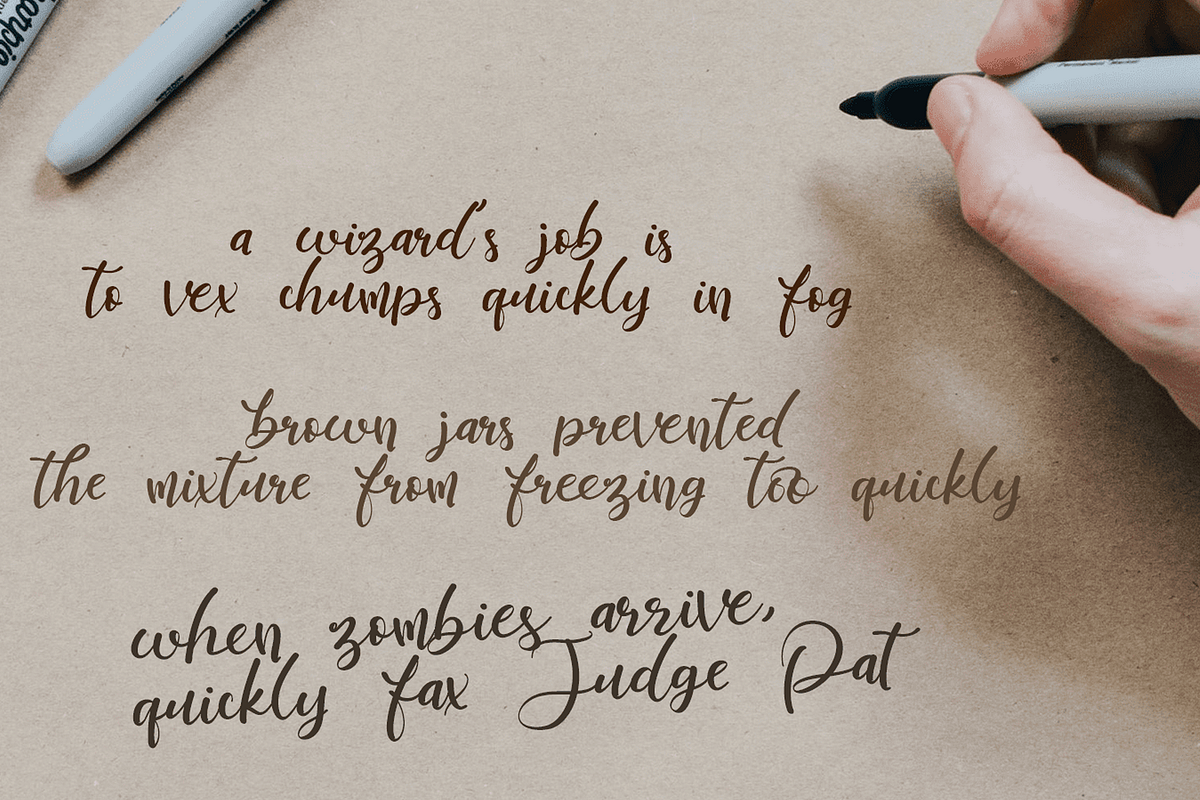 a wizard's job is
to vex chumps quickly in fog
brown jars prevented
the mixture from freezing too quickly
when zombies arrive,
quickly fax Judge Pat